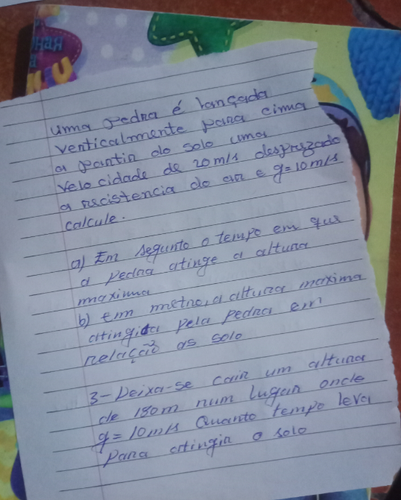 ная
uma pedra é lançada
verticalmente para cima
a partir do solo uma
velocidade de 20m/s desprezado
a resistencia do ar e g=10m/s
calcule.
a) Em segunto o tempo em que
a pedra atinge a altura
maxima
b) em metro, a altura maxima
atingida pela pedra em
relação as solo
3- Deixa-se cair um altura
de 180m num lugar onde
g=10m/s Quanto tempo leva
para atingir o solo